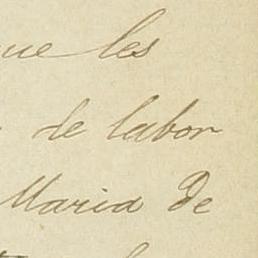 que les
de labor
Maria de